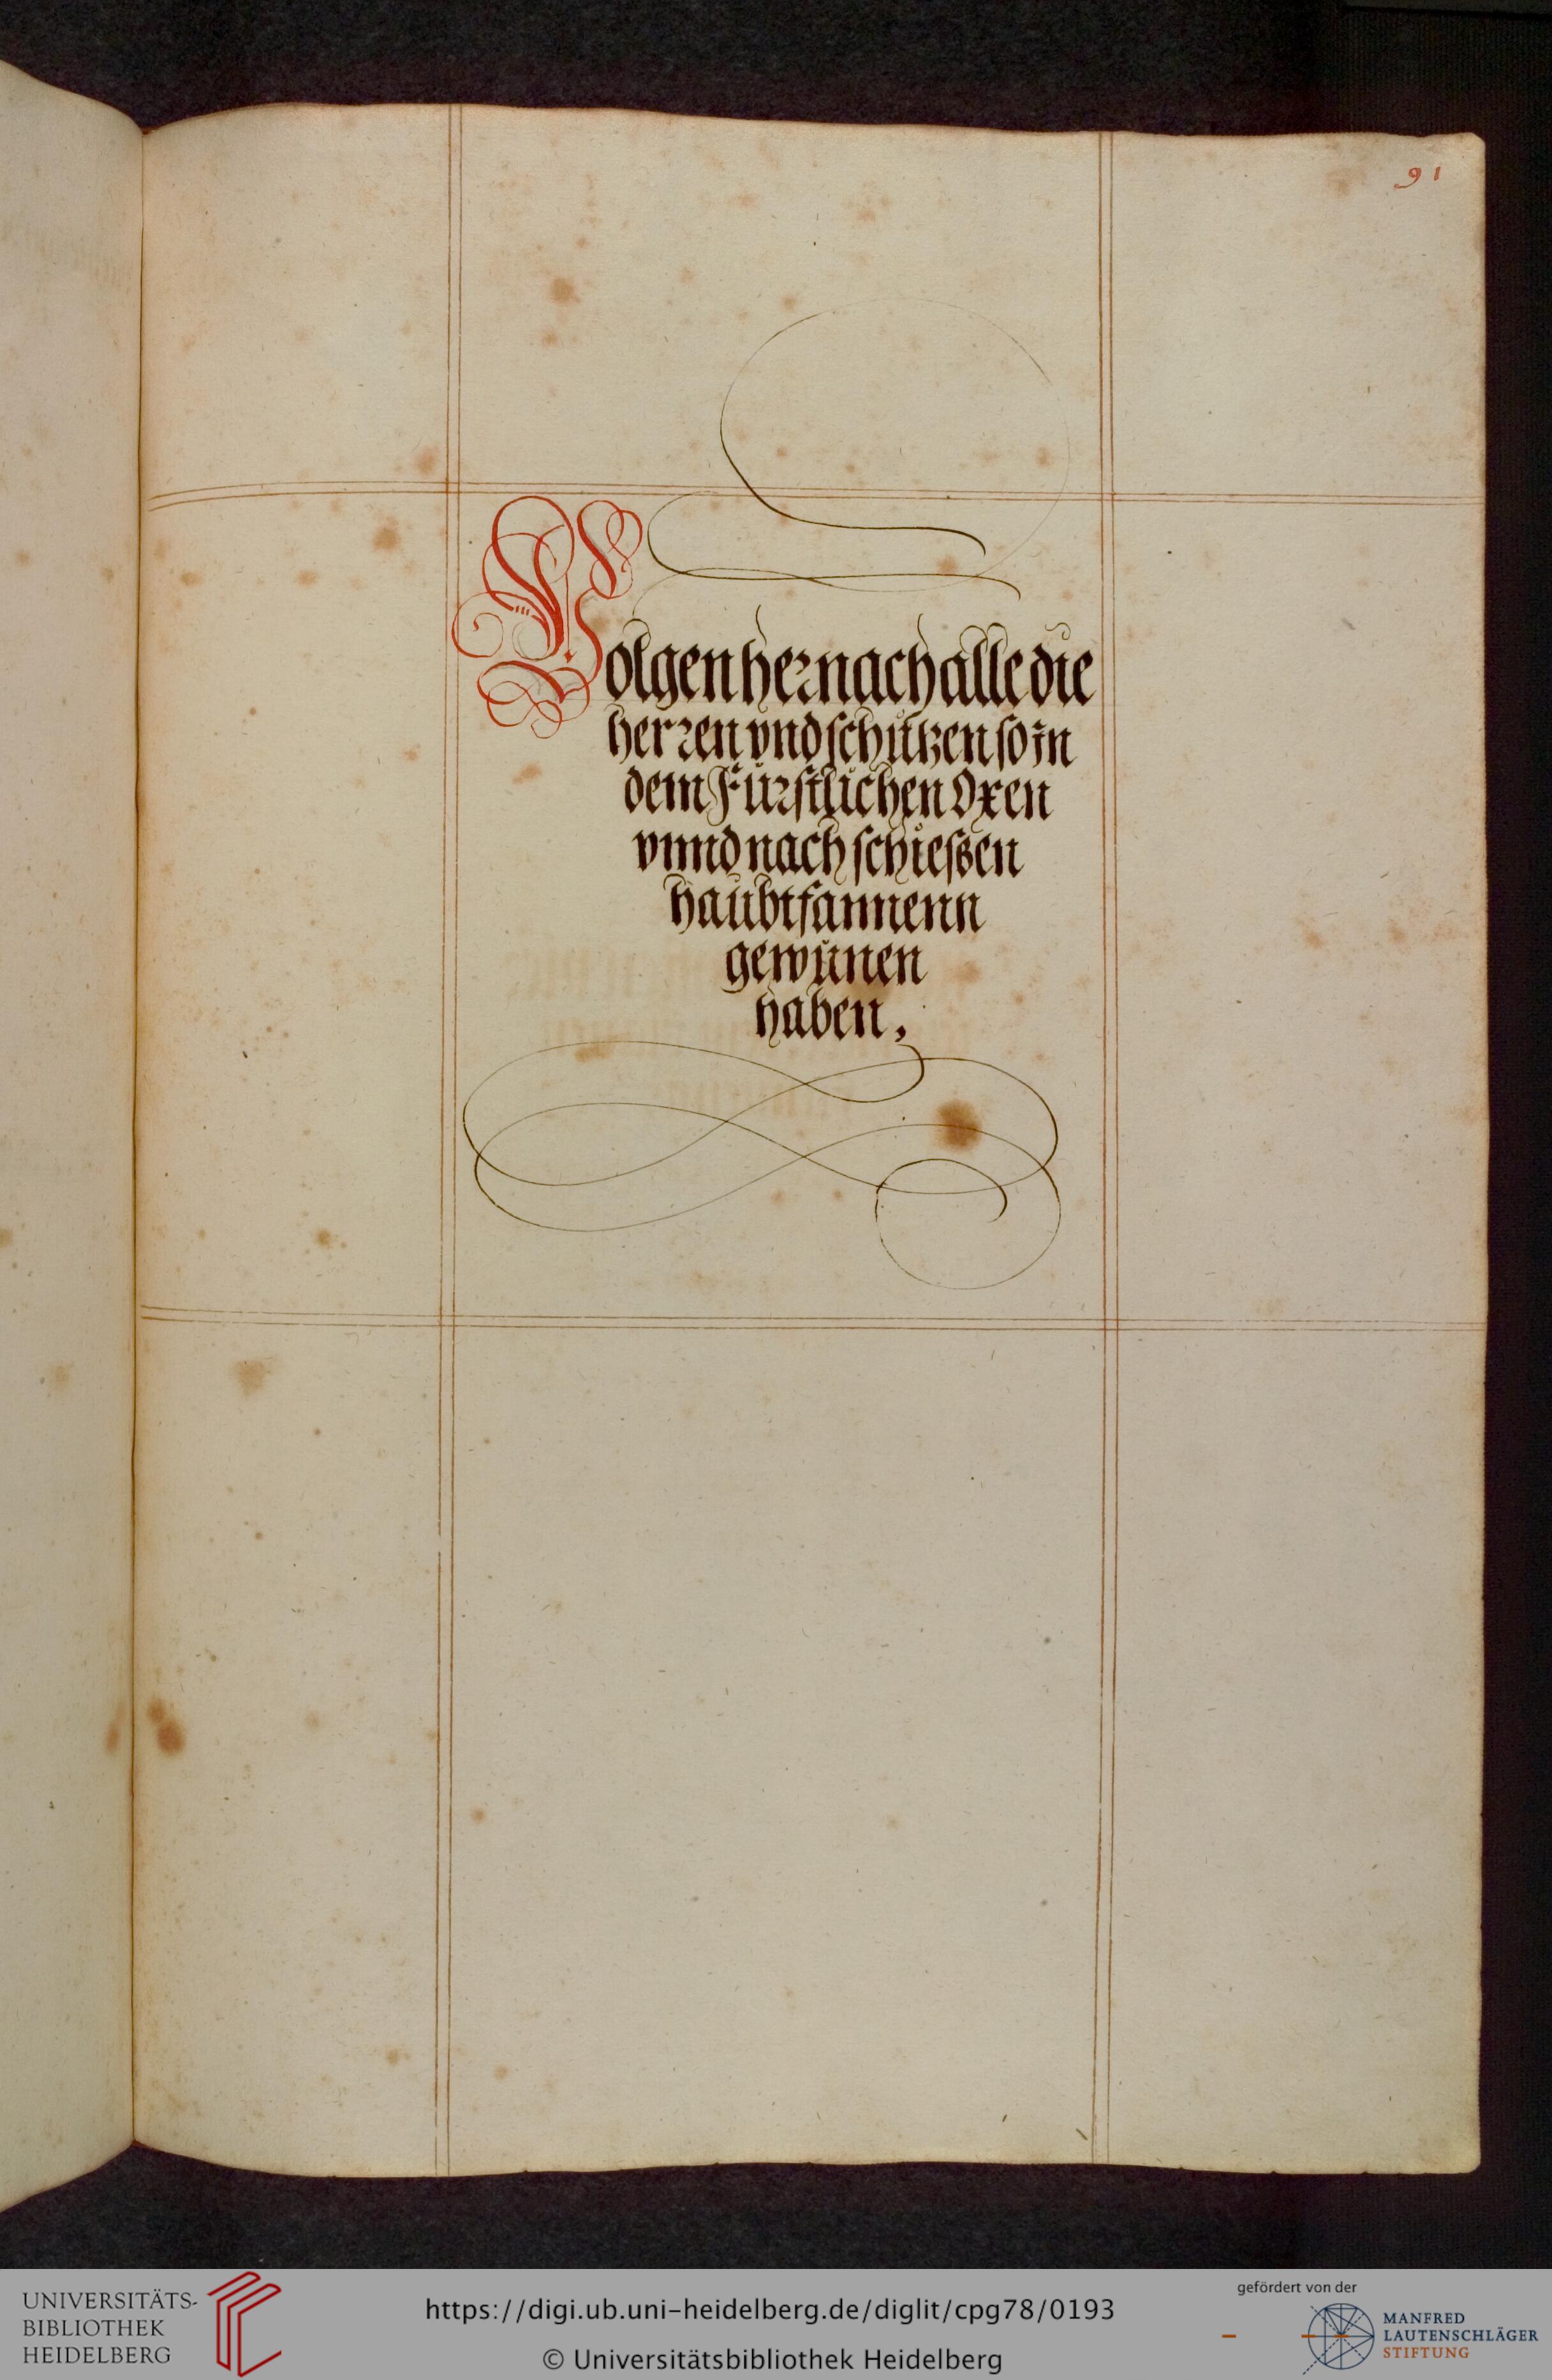 91
Volgen hernach alle die
herren vnd schützen so in
dem Fürstlichen Oxen
vnnd nach schiessen
haubtfannenn
gewünen
haben,
UNIVERSITÄTS-
BIBLIOTHEK
HEIDELBERG
https://digi.ub.uni-heidelberg.de/diglit/cpg78/0193
© Universitätsbibliothek Heidelberg
gefördert von der
MANFRED
LAUTENSCHLÄGER
STIFTUNG